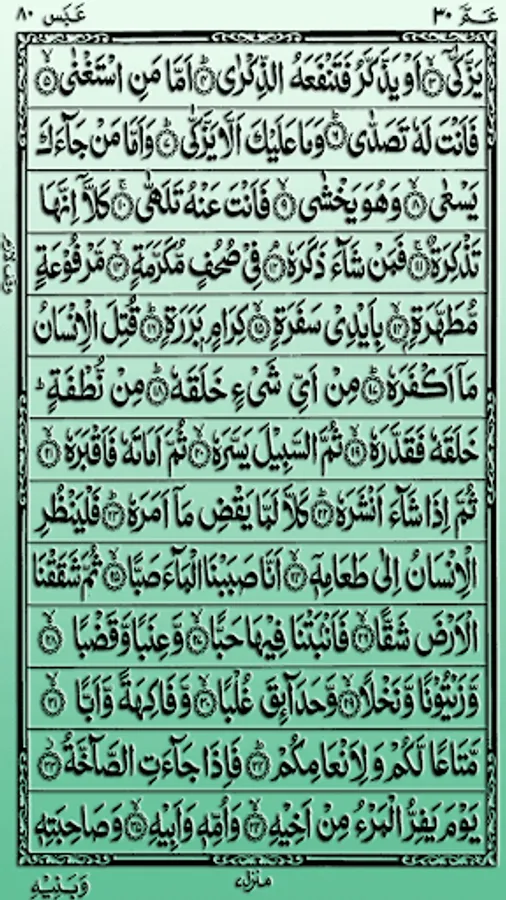 عَمَّ ٣٠ عَبَسَ ٨٠
يَزَّكّٰىۤ ۙ﴿۳﴾ اَوْ يَذَّكَّرُ فَتَنْفَعَهُ الذِّكْرٰى ؕ﴿۴﴾ اَمَّا مَنِ اسْتَغْنٰى ۙ﴿۵﴾
فَاَنْتَ لَهٗ تَصَدّٰى ؕ﴿۶﴾ وَمَا عَلَيْكَ اَلَّا يَزَّكّٰى ؕ﴿۷﴾ وَاَمَّا مَنْ جَآءَكَ
يَسْعٰى ۙ﴿۸﴾ وَهُوَ يَخْشٰى ۙ﴿۹﴾ فَاَنْتَ عَنْهُ تَلَهّٰى ۚ﴿۱۰﴾ كَلَّاۤ اِنَّهَا
تَذْكِرَةٌ ۚ﴿۱۱﴾ فَمَنْ شَآءَ ذَكَرَهٗ ۘ﴿۱۲﴾ فِىْ صُحُفٍ مُّكَرَّمَةٍ ۙ﴿۱۳﴾ مَّرْفُوْعَةٍ
مُّطَهَّرَةٍۭ ۙ﴿۱۴﴾ بِاَيْدِىْ سَفَرَةٍ ۙ﴿۱۵﴾ كِرَامٍۭ بَرَرَةٍ ؕ﴿۱۶﴾ قُتِلَ الْاِنْسَانُ
مَاۤ اَكْفَرَهٗ ؕ﴿۱۷﴾ مِنْ اَىِّ شَىْءٍ خَلَقَهٗ ؕ﴿۱۸﴾ مِنْ نُّطْفَةٍ ؕ
خَلَقَهٗ فَقَدَّرَهٗ ۙ﴿۱۹﴾ ثُمَّ السَّبِيْلَ يَسَّرَهٗ ۙ﴿۲۰﴾ ثُمَّ اَمَاتَهٗ فَاَقْبَرَهٗ ۙ﴿۲۱﴾
ثُمَّ اِذَا شَآءَ اَنْشَرَهٗ ؕ﴿۲۲﴾ كَلَّا لَمَّا يَقْضِ مَاۤ اَمَرَهٗ ؕ﴿۲۳﴾ فَلْيَنْظُرِ
الْاِنْسَانُ اِلٰى طَعَامِهٖۤ ۙ﴿۲۴﴾ اَنَّا صَبَبْنَا الْمَآءَ صَبًّا ۙ﴿۲۵﴾ ثُمَّ شَقَقْنَا
الْاَرْضَ شَقًّا ۙ﴿۲۶﴾ فَاَنْۢبَتْنَا فِيْهَا حَبًّا ۙ﴿۲۷﴾ وَّعِنَبًا وَّقَضْبًا ۙ﴿۲۸﴾
وَّزَيْتُوْنًا وَّنَخْلًا ۙ﴿۲۹﴾ وَّحَدَآئِقَ غُلْبًا ۙ﴿۳۰﴾ وَّفَاكِهَةً وَّاَبًّا ۙ﴿۳۱﴾
مَّتَاعًا لَّكُمْ وَلِاَنْعَامِكُمْ ؕ﴿۳۲﴾ فَاِذَا جَآءَتِ الصَّآخَّةُ ۫﴿۳۳﴾
يَوْمَ يَفِرُّ الْمَرْءُ مِنْ اَخِيْهِ ۙ﴿۳۴﴾ وَاُمِّهٖ وَاَبِيْهِ ۙ﴿۳۵﴾ وَصَاحِبَتِهٖ
منزل۷ وَبَنِيْهِ